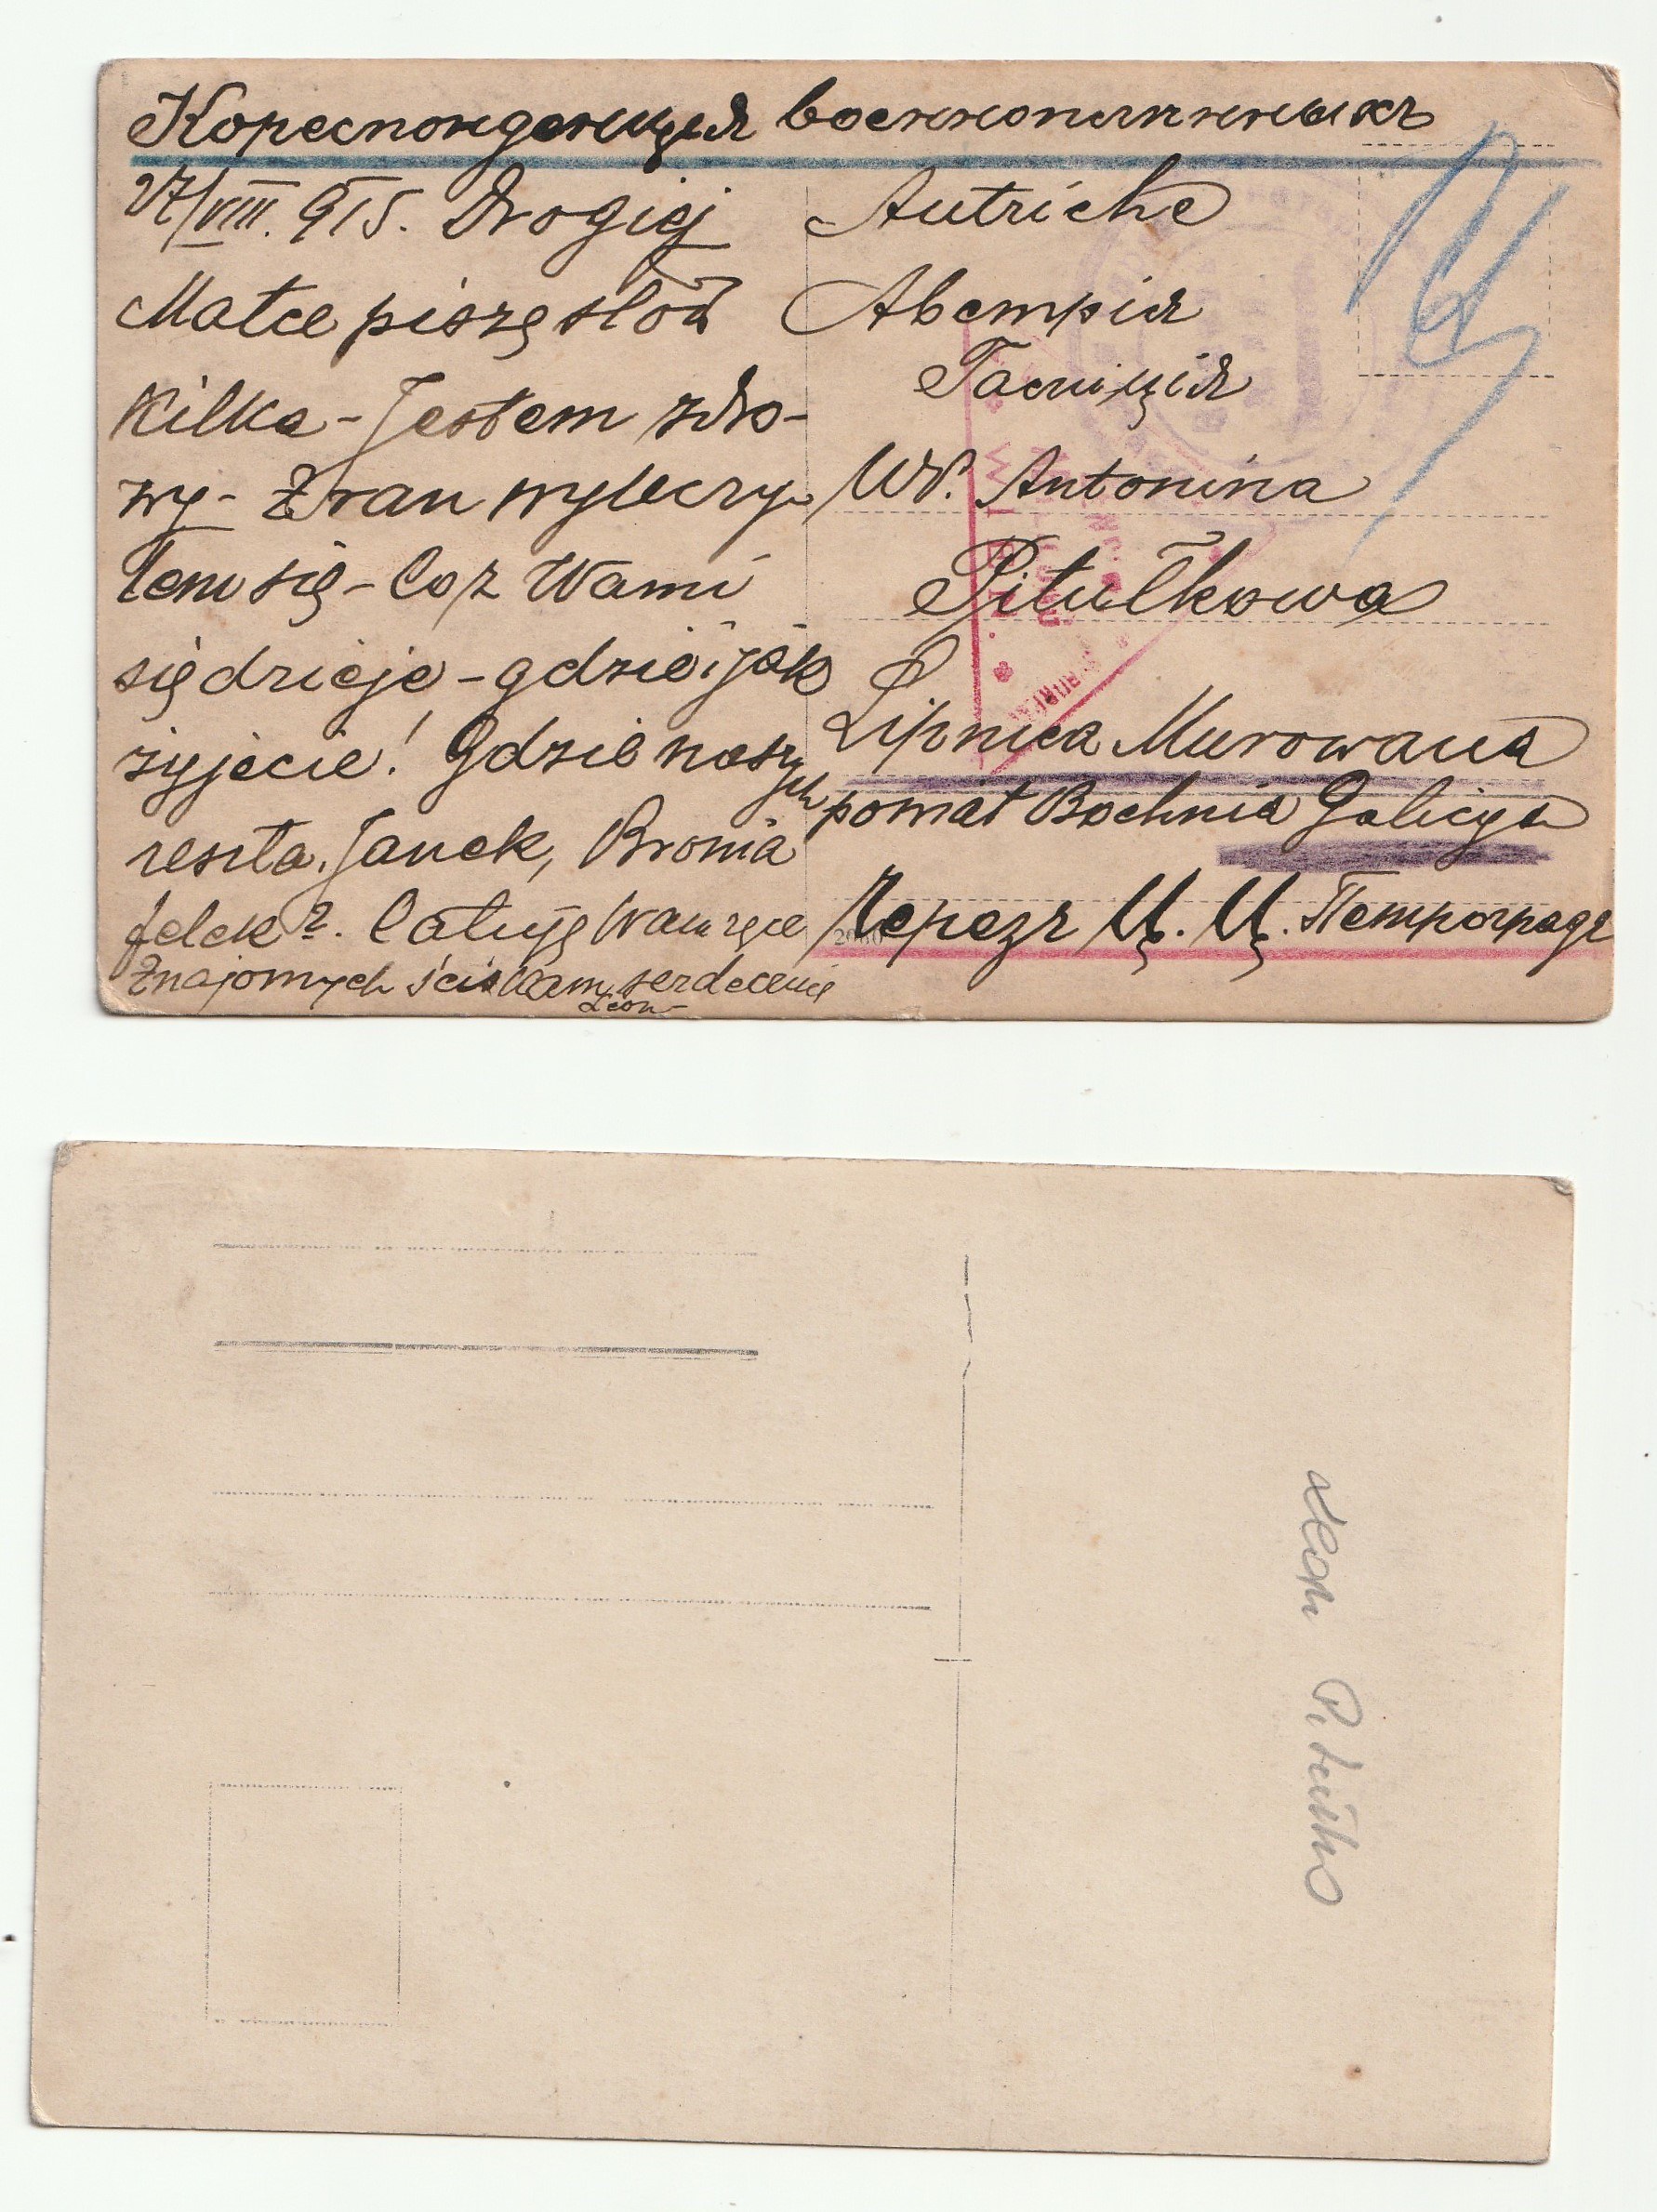 Кореспонденция военнопленныхъ
27/VIII. 915. Drogiej
Matce piszę słów
kilka - Jestem zdro-
wy - Z ran wyleczy-
łem się - Co z Wami
się dzieje - gdzie i jak
żyjecie! Gdzie naszych
reszta. Janek, Bronia
felek?. Całuję Wam ręce
Znajomych ściskam serdecznie
Leon
Autriche
Австрія
Галиція
WP. Antonina
Pitułkowa
Lipnica Murowana
powiat Bochnia Galicya
Черезъ Ц. Ц. Петроградъ
Leon Pitułko